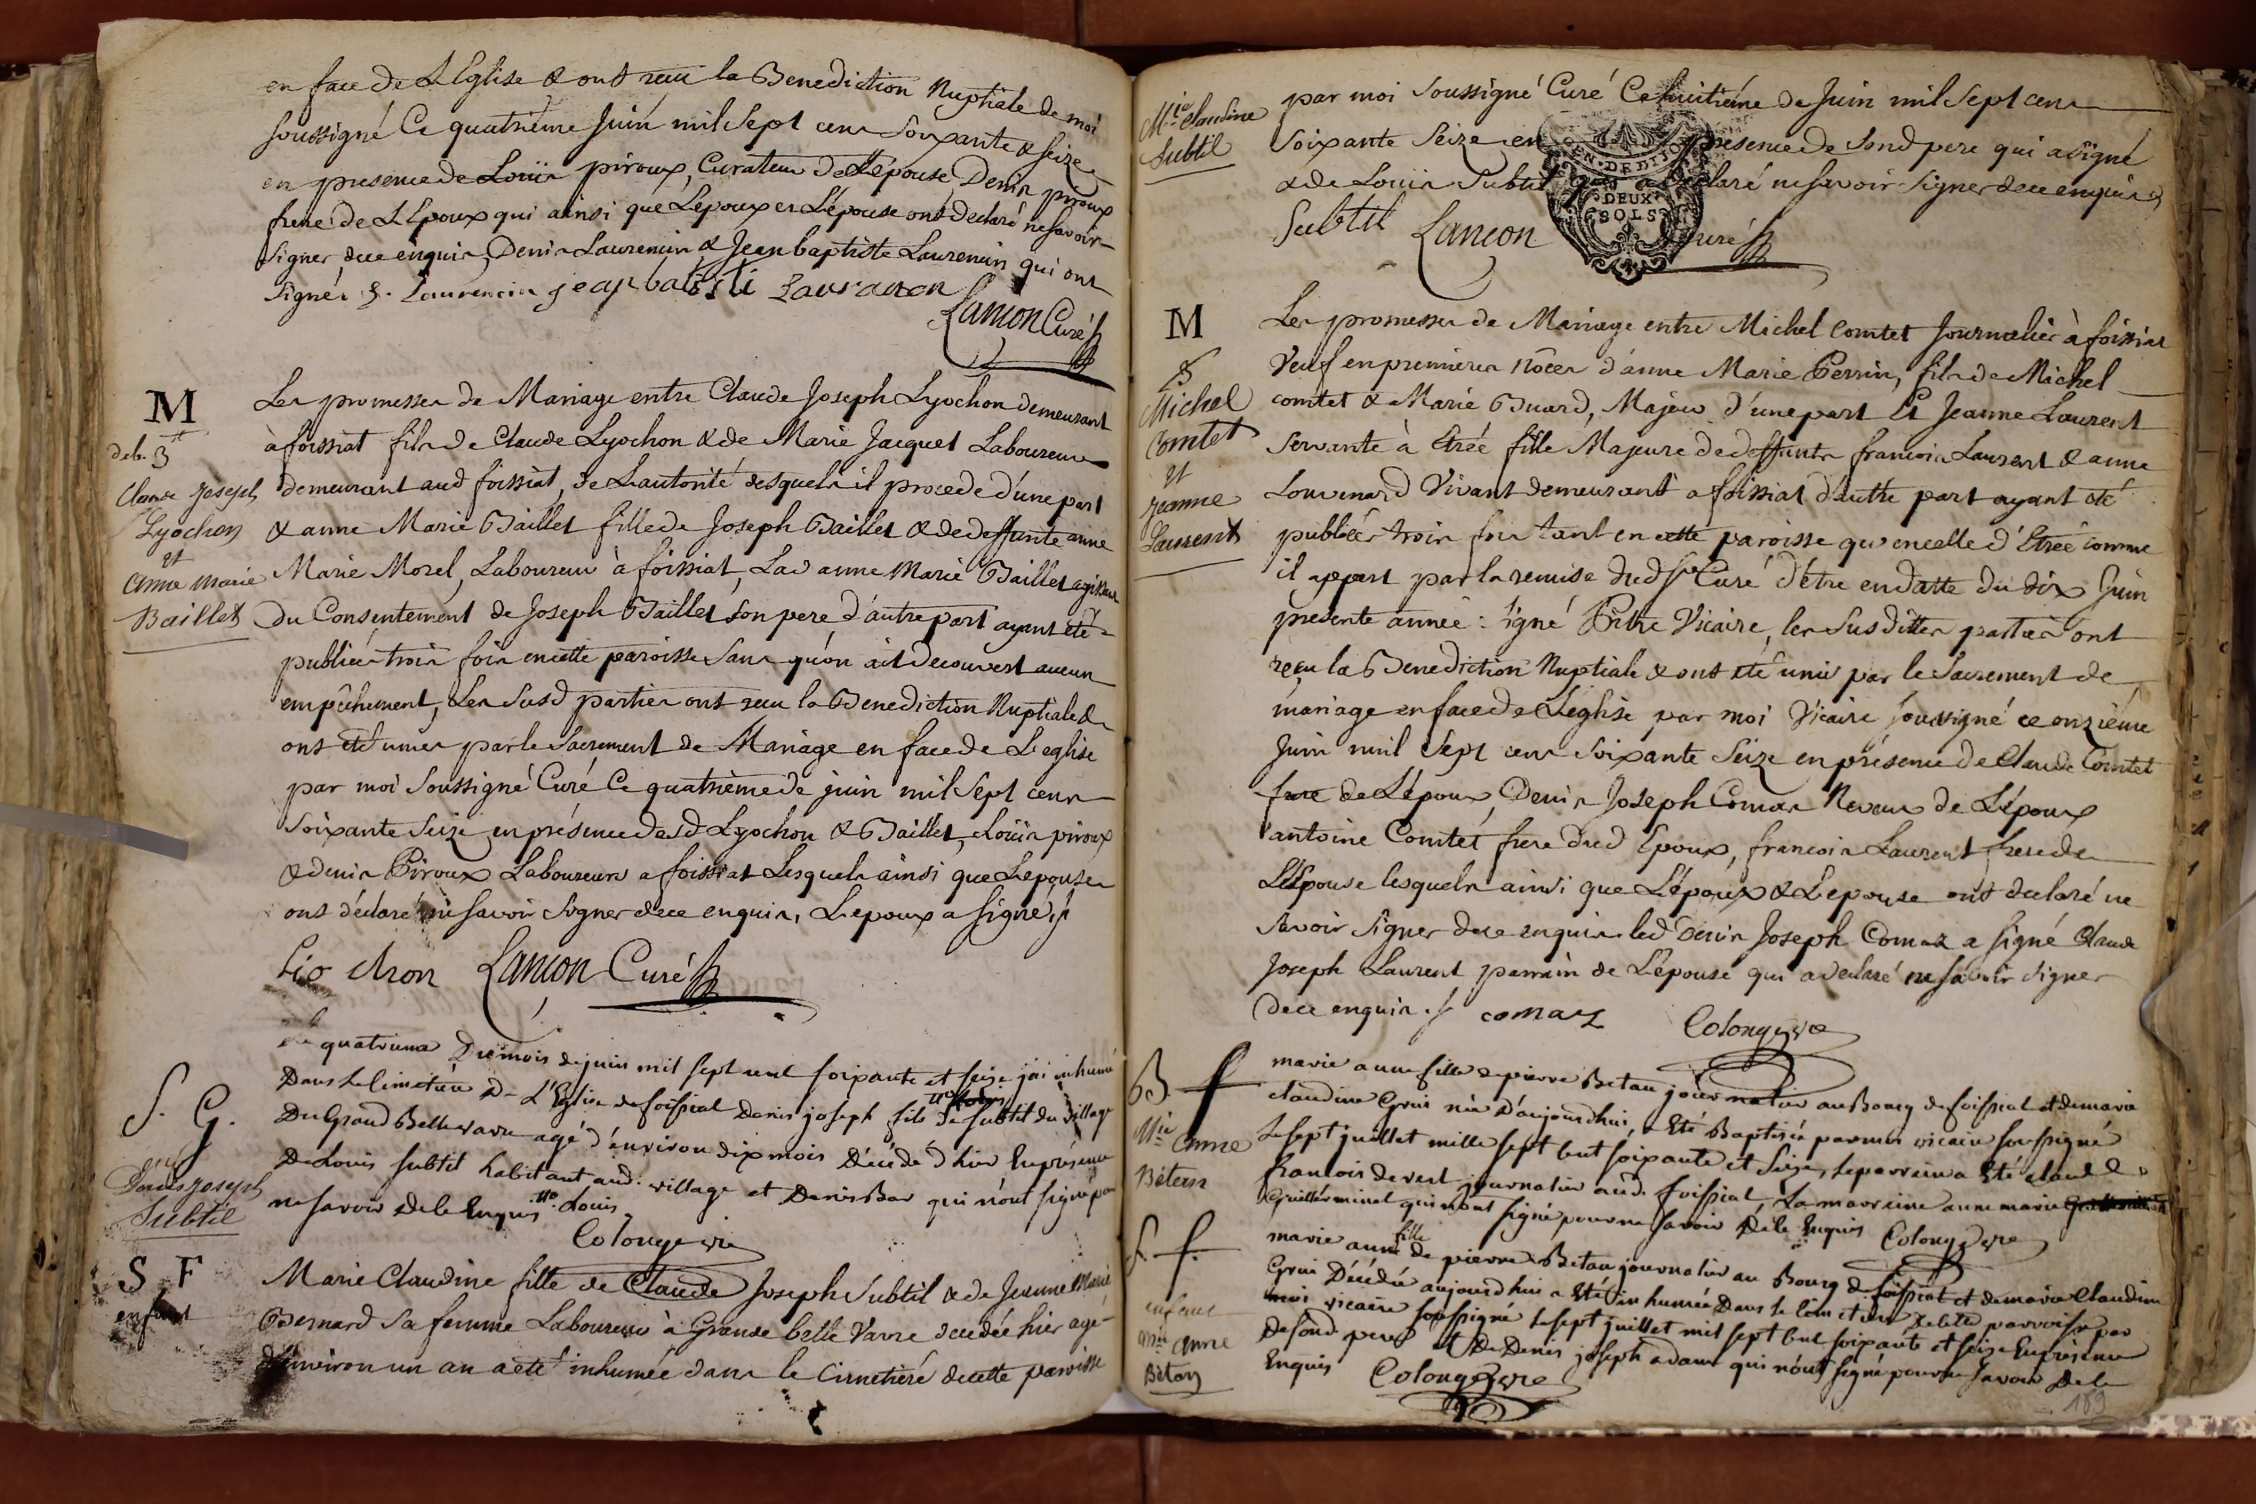 en face de L'Eglise & ont recu la Benediction Nuptiale de moi
soussigné Ce quatriéme Juin mil Sept cens Soixante & seize
en presence de Loüis piroux, Curateur de L'épouse, Denis piroux
frere de L'Epoux qui ainsi que L'epoux et L'épouse ont declaré ne savoir
signer de ce enquis, Denis Laurencin & Jean baptiste Laurencin qui ont
signés §. Laurencin jean batisti Lauranson
Lançon Curé
M
deb. 3tt
Claude Joseph
Lyochon
et
anne marie
Baillet
Les promesses de Mariage entre Claude Joseph Lyochon demeurant
à foissiat fils de Claude Lyochon & de Marie Jacquet Laboureurs
demeurant aud foissiat, de L'autorité desquels il procede d'une part
& anne Marie Baillet fille de Joseph Baillet & de deffunte anne
Marie Morel, Laboureur à foissiat, Lad anne Marie Baillet agissant
du Consentement de Joseph Baillet son pere d'autre part ayant été
publiées trois fois en cette paroisse sans qu'on ait decouvert aucun
empêchement, Les Susd parties ont recu la Benediction Nuptiale &
ont eté unies par le Sacrement de Mariage en face de L'eglise
par moi Soussigné Curé Ce quatrieme de juin mil Sept cens
Soixante Seize en présence desd Lyochon & Baillet, Loüis piroux
& denis Piroux Laboureurs a foissiat Lesquels ainsi que L'epouse
ont déclaré ne savoir signer de ce enquis, L'epoux a signé
Lio chon Lançon Curé
S. G.
Denis joseph
Subtil
Le quatrieme Du mois de juin mil sept cent soixante et seize j'ai inhumé
Dans le cimetière De L'Eglise de foissiat Denis joseph fils de subtil du village
Du Grand Bellevavre agé d'environ dix mois Décédé d'hier En présence
De Louis subtil habitant aud. village et Denis Bar qui n'ont signé pour
ne savoir de le Enquis Louis
Colongevre
S F
enfant
Marie Claudine fille de Claude Joseph Subtil & de Jeanne Marie
Bernard Sa femme Laboureurs à Grande belle Varre decedée hier agé
d'environ un an a eté inhumée dans le Cimetiére de cette paroisse
Mie Claudine
Subtil
par moi Soussigné Curé Ce huitiéme de Juin mil Sept cens
Soixante Seize en presence de Sond pere qui a signé
& de Loüis Subtil qui a declaré ne savoir signer de ce enquis
GEN. DE DIJON
DEUX
SOLS
Subtil Lançon Curé
M
Michel
Comtet
et
Jeanne
Laurent
Les promesses de Mariage entre Michel Comtet Journalier à foissiat
Veuf en premieres nôces d'anne Marie Perrin, fils de Michel
comtet & Marie Buard, Majeur d'une part Et Jeanne Laurent
servante à Etréé fille Majeure de deffunts francois Laurent & anne
Louvenard Vivant demeurant a foissiat d'autre part ayant été
publiées trois fois tant en cette paroisse qu'en celle d'Etréé comme
il appert par la remise dud Sr Curé d'être en datte du dix Juin
presente année : signé Pitre Vicaire, les Susdittes parties ont
reçu la Benediction Nuptiale & ont eté unis par le Sacrement de
mariage en face de L'église par moi Vicaire soussigné ce onzième
Juin mil Sept cens Soixante Seize en présence de Claude Comtet
frere de L'époux, Denis Joseph Comas Neveux de L'époux
antoine Comtet frere dud Epoux, francois Laurent frere de
L'Epouse lesquels ainsi que L'époux & L'epouse ont declaré ne
Savoir Signer de ce enquis led Denis Joseph Comaz a signé Claude
Joseph Laurent parrain de L'épouse qui a declaré ne savoir signer
de ce enquis. comaz Colongevre
B f
Mie anne
Betan
marie anne fille de pierre Betan journalier au Bourg de foissiat et de marie
claudine Grui née D'aujourd'hui, a Eté Baptisée par moi vicaire soussigné
Le sept juillet mille sept cent soixante et Seize, le parrein a Eté claude
francois devert journalier aud. foissiat, La marreine anne marie
Guillerminet qui n'ont signé pour ne savoir De le Enquis Colongevre
S. f.
enfant
Mie anne
Betan
marie anne fille de pierre Betan journalier au Bourg de foissiat et de marie Claudine
Grui Décédée aujourd'hui a Eté inhumée Dans le cimetiere De cette parroisse par
moi vicaire soussigné Le sept juillet mil sept cent soixante et seize En présence
De sond. pere et De Denis joseph adam qui n'ont signé pour ne savoir De le
Enquis Colongevre
189